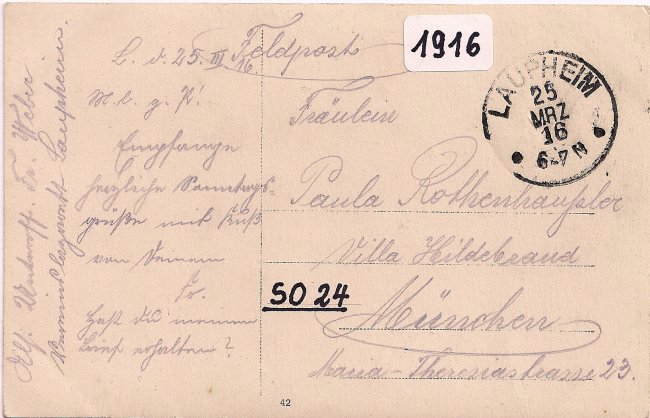 1916
LAUPHEIM
25
MRZ
16
6-7 N
L. d. 25. III 16
Feldpost
M. l. g. P!
Empfange
herzliche Sonntags-
grüße mit Kuß
von Deinem
Fr.
Hast du meinen
Brief erhalten?
Fräulein
Paula Rothenhäusler
Villa Hildebrand
SO 24
München
Maria-Theresiastrasse 23.
Abs. Unteroff. Fr. Weber
Vereinslazarett Laupheim.
42